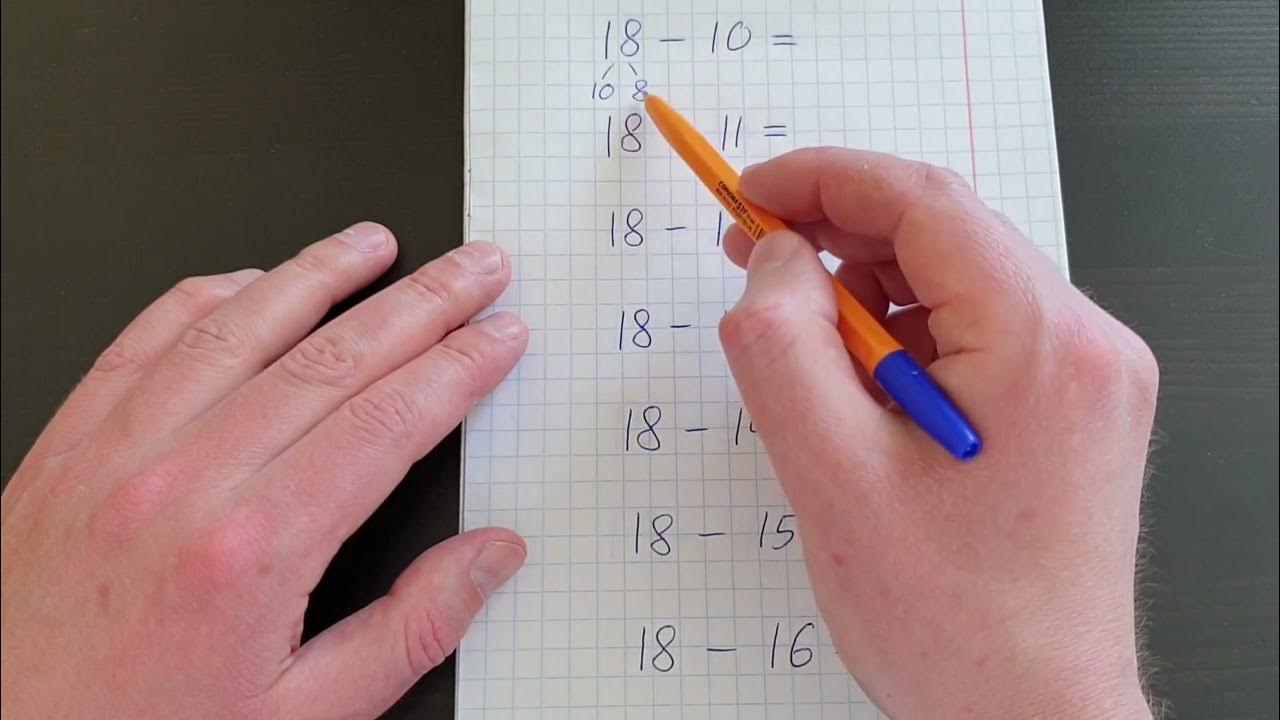 18 - 10 =
10 8
18 11 =
18 -
18 -
18 -
18 - 15
18 - 16